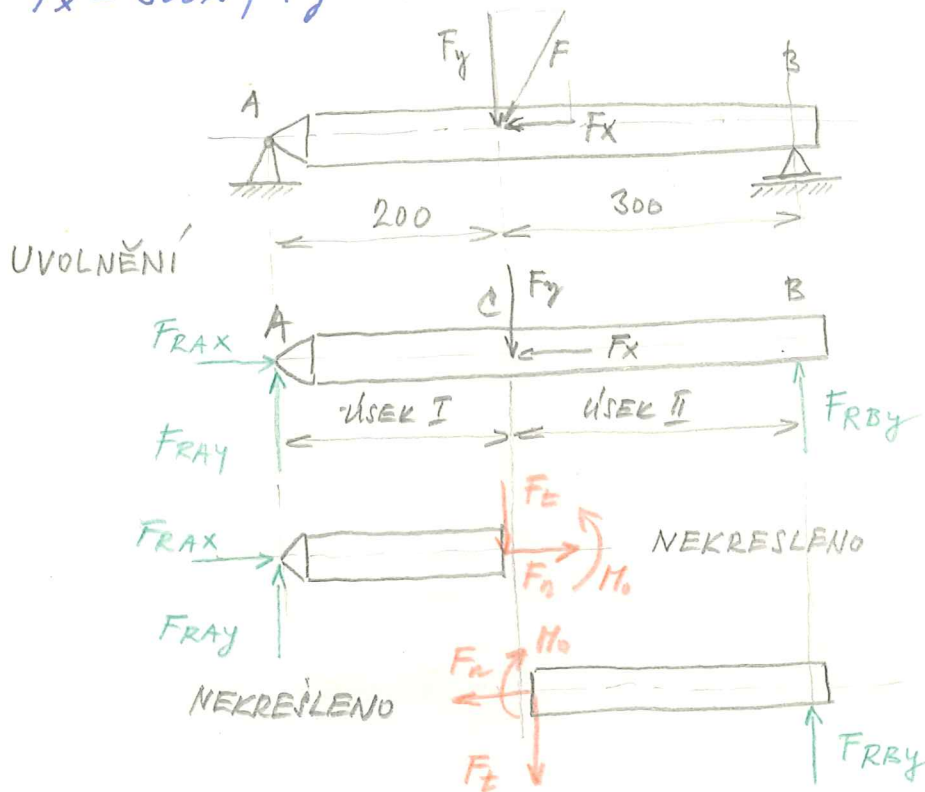 Fy F B
A
Fx
200 300
UVOLNĚNÍ
C Fy B
FRAX A
Fx
ÚSEK I ÚSEK II
FRAY FRBy
Ft
FRAX NEKRESLENO
Fn Mo
FRAY
Fn Mo
NEKRESLENO
Ft FRBy